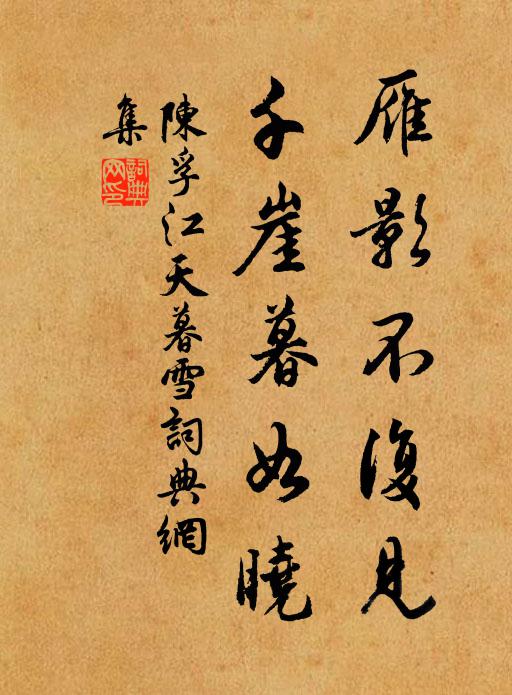 雁影不復見
千崖暮如曉
陳孚江天暮雪詞典網
集
詞典網印